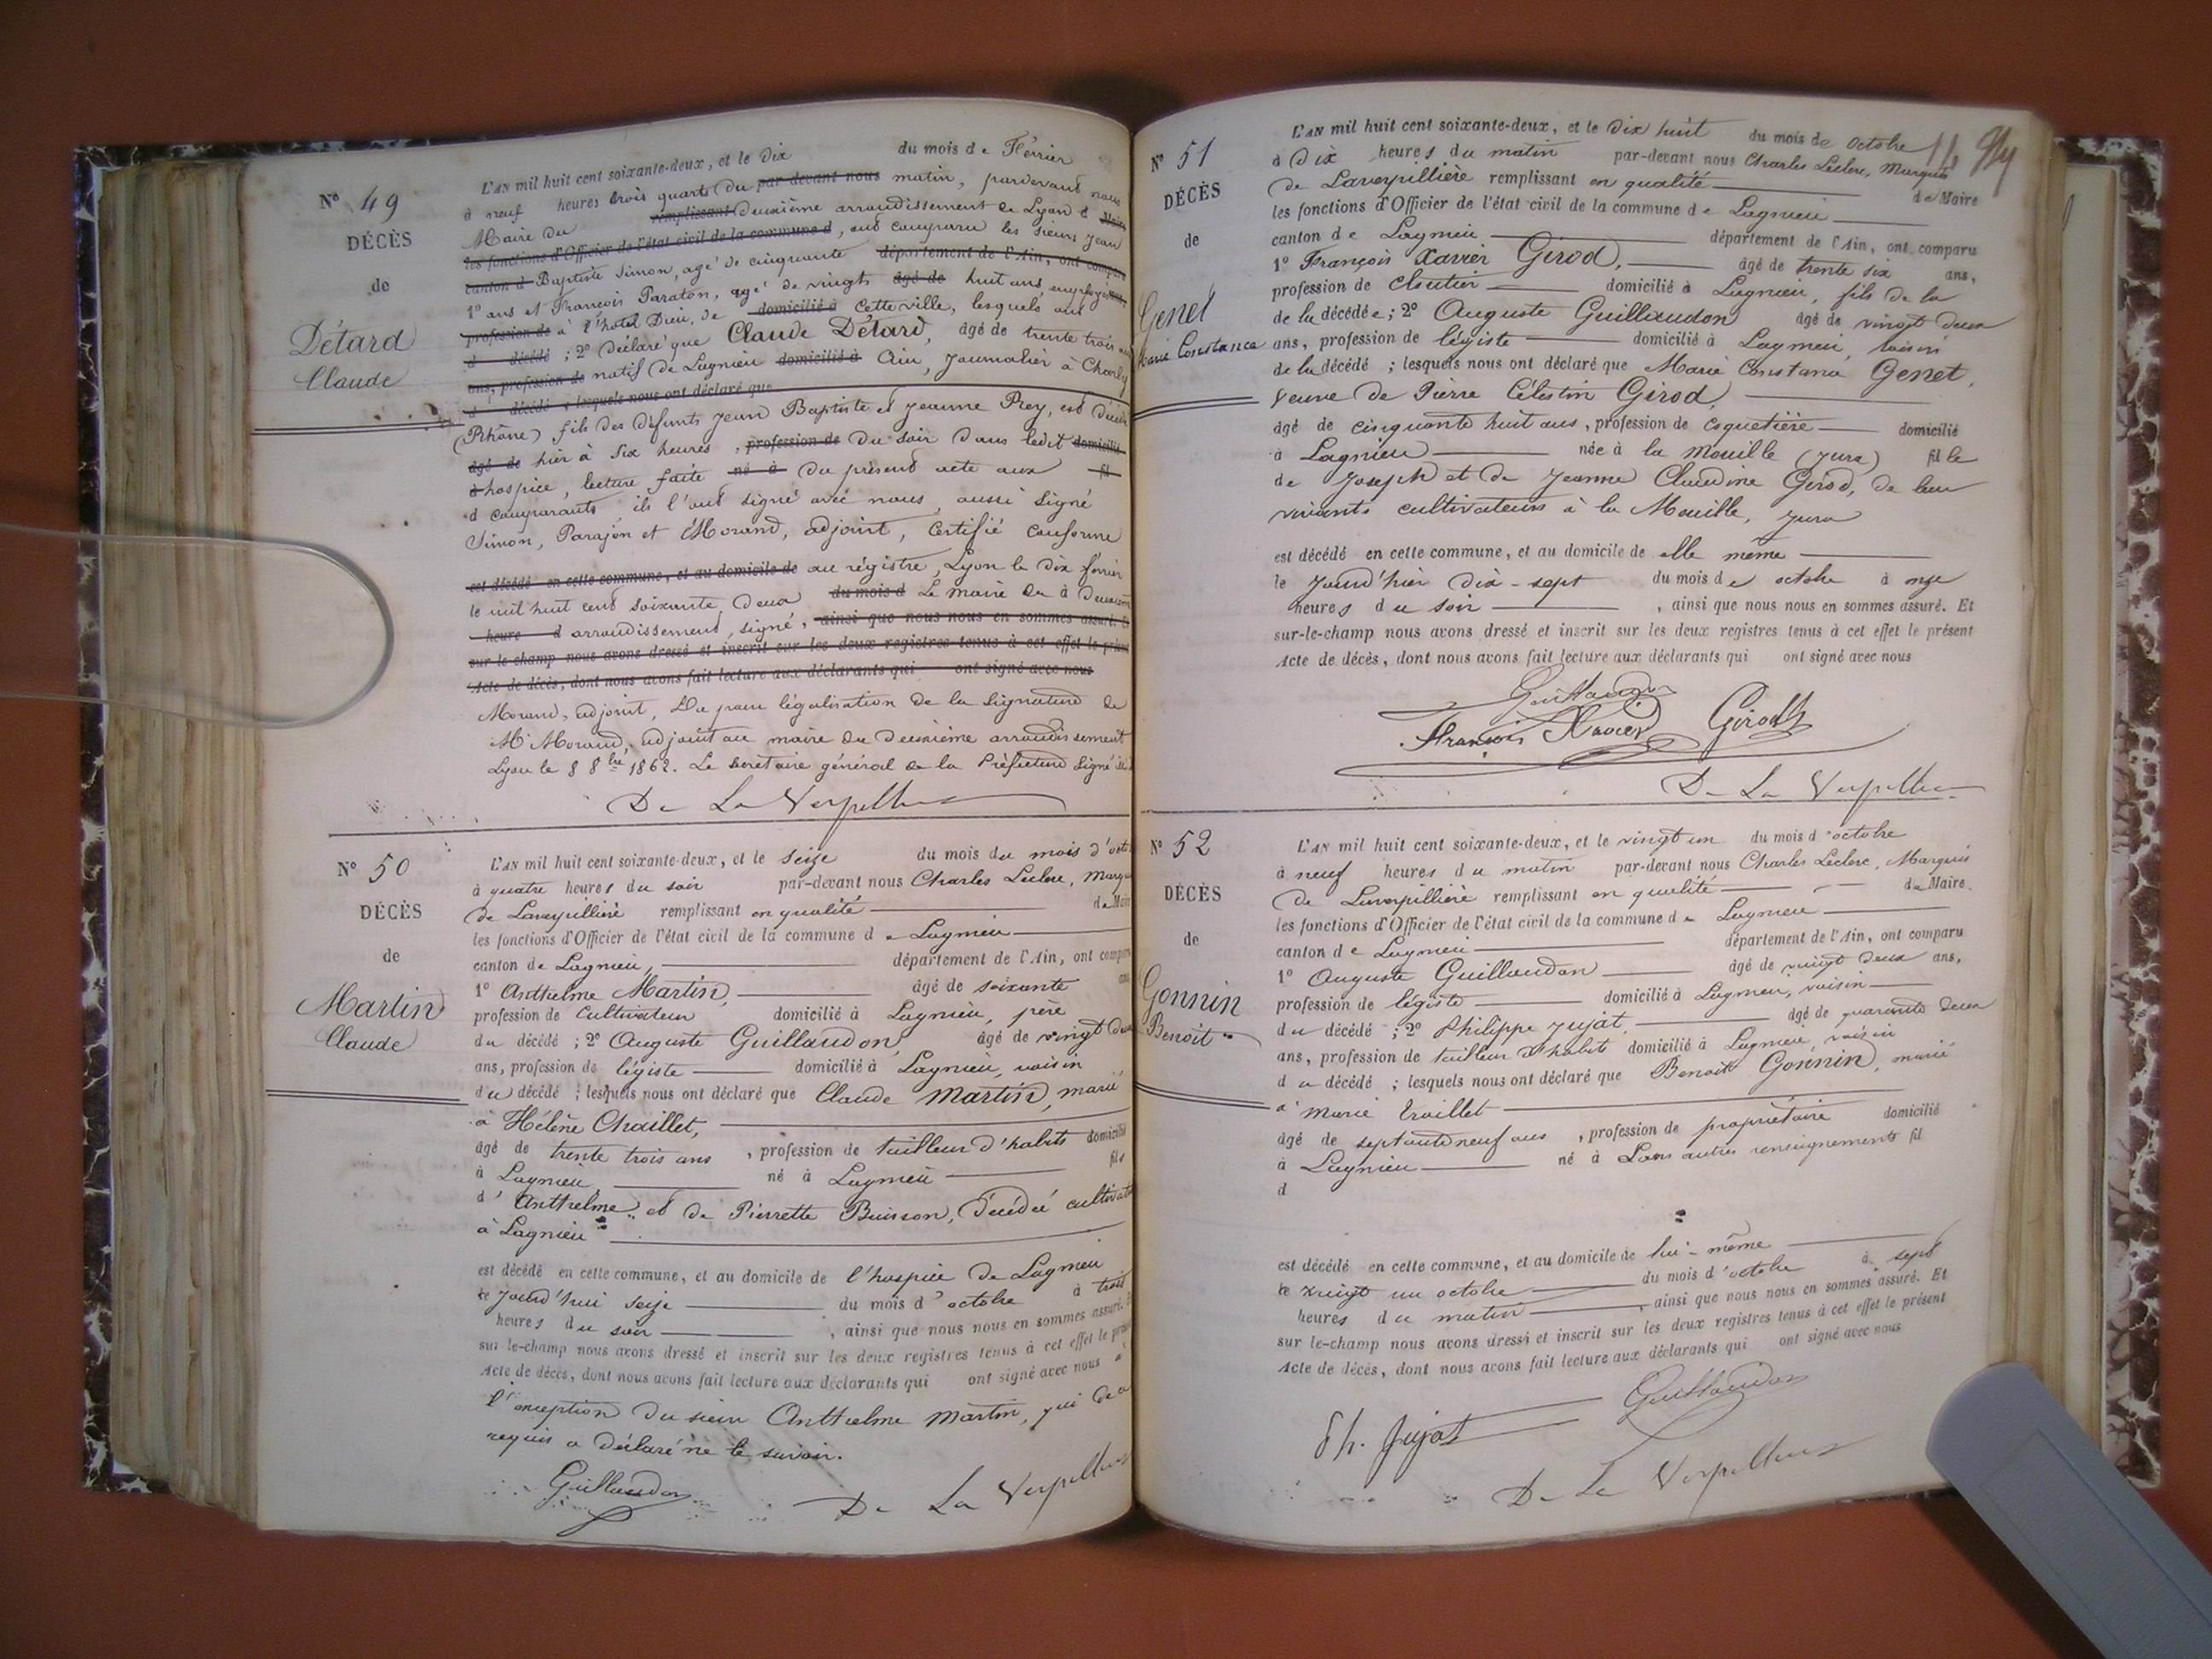 N° 49
DÉCÈS
de
Détard
Claude
L'AN mil huit cent soixante-deux, et le dix du mois de Février
à neuf heures trois quarts du par-devant nous matin, pardevant nous
Maire du remplissant deuxième arrondissement de Lyon d Maire
les fonctions d'Officier de l'état civil de la commune d, ont comparu les sieurs Jean
canton d Baptiste Simon, agé de cinquante département de l'Ain, ont comparu
1° ans et François Paraton, agé de vingt âgé de huit ans, employés
profession de à l'hotel Dieu, de domicilié à cette ville, lesquels ont
d décédé ; 2° déclaré que Claude Détard, âgé de trente trois
ans, profession de natif de Lagnieu domicilié à Ain, journalier à Charly
d décédé ; lesquels nous ont déclaré que
(Rhône) fils des défunts Jean Baptiste et Jeanne Prey, est décédé
âgé de hier à six heures, profession de du soir dans ledit domicilié
à hospice, lecture faite né à du présent acte aux fil
d comparants ils l'ont signé avec nous, aussi signé
Simon, Parajon et Morand, adjoint, certifié conforme
est décédé en cette commune, et au domicile de au régistre, Lyon le dix février
le mil huit cent soixante deux du mois d Le maire du à deuxième
heure d arrondissement, signé, ainsi que nous nous en sommes assuré. Et
sur-le-champ nous avons dressé et inscrit sur les deux registres tenus à cet effet le présent
Acte de décès, dont nous avons fait lecture aux déclarants qui ont signé avec nous
Morand, adjoint, Vu pour légalisation de la signature de
Mr Morand, adjoint au maire du deuxième arrondissement
Lyon le 8 8bre 1862. Le secrétaire général de la Préfecture signé
De La Verpillière
N° 50
DÉCÈS
de
Martin
Claude
L'AN mil huit cent soixante-deux, et le seize du mois du mois d'octobre
à quatre heures du soir par-devant nous Charles Leclerc, Marquis
de Laverpillière remplissant en qualité de Maire
les fonctions d'Officier de l'état civil de la commune de Lagnieu
canton de Lagnieu, département de l'Ain, ont comparu
1° Anthelme Martin, âgé de soixante ans
profession de cultivateur domicilié à Lagnieu, père
du décédé ; 2° Auguste Guillaudon, âgé de vingt deux
ans, profession de légiste domicilié à Lagnieu, voisin
du décédé ; lesquels nous ont déclaré que Claude Martin, marié
à Hélène Chaillet,
âgé de trente trois ans, profession de tailleur d'habits domicilié
à Lagnieu, né à Lagnieu fils
d'Anthelme et de Pierrette Buisson, décédée cultivat
à Lagnieu
est décédé en cette commune, et au domicile de l'hospice de Lagnieu
le jourd'hui seize du mois d'octobre à trois
heures du soir, ainsi que nous nous en sommes assuré. Et
sur-le-champ nous avons dressé et inscrit sur les deux registres tenus à cet effet le présent
Acte de décès, dont nous avons fait lecture aux déclarants qui ont signé avec nous à
l'exception du sieur Anthelme Martin, qui de ce
requis a déclaré ne le savoir.
Guillaudon
De La Verpillière
N° 51
DÉCÈS
de
Genet
Marie Constance
L'AN mil huit cent soixante-deux, et le dix huit du mois de octobre
à dix heures du matin par-devant nous Charles Leclerc, Marquis
de Laverpillière remplissant en qualité de Maire
les fonctions d'Officier de l'état civil de la commune de Lagnieu
canton de Lagnieu département de l'Ain, ont comparu
1° François Xavier Girod, âgé de trente six ans,
profession de cloutier domicilié à Lagnieu, fils de la
de la décédée ; 2° Auguste Guillaudon âgé de vingt deux
ans, profession de légiste domicilié à Lagnieu, voisin
de la décédé ; lesquels nous ont déclaré que Marie Constance Genet,
veuve de Pierre Célestin Girod,
âgé de cinquante huit ans, profession de coquetière domicilié
à Lagnieu née à la Mouille (Jura) fille
de Joseph et de Jeanne Claudine Girod, de leur
vivants cultivateurs à la Mouille, Jura
est décédé en cette commune, et au domicile de elle même
le jourd'hier dix-sept du mois de octobre à onze
heures du soir, ainsi que nous nous en sommes assuré. Et
sur-le-champ nous avons dressé et inscrit sur les deux registres tenus à cet effet le présent
Acte de décès, dont nous avons fait lecture aux déclarants qui ont signé avec nous
Guillaudon
François Xavier Girod
De La Verpillière
N° 52
DÉCÈS
de
Gonnin
Benoit
L'AN mil huit cent soixante-deux, et le vingt un du mois d'octobre
à neuf heures du matin par-devant nous Charles Leclerc, Marquis
de Laverpillière remplissant en qualité de Maire
les fonctions d'Officier de l'état civil de la commune de Lagnieu
canton de Lagnieu département de l'Ain, ont comparu
1° Auguste Guillaudon âgé de vingt deux ans,
profession de légiste domicilié à Lagnieu, voisin
du décédé ; 2° Philippe Jujat, âgé de quarante deux
ans, profession de tailleur d'habits domicilié à Lagnieu, voisin
du décédé ; lesquels nous ont déclaré que Benoit Gonnin, marié
à Marie Traillet
âgé de septante neuf ans, profession de propriétaire domicilié
à Lagnieu né à Sans autres renseignements fil
d
est décédé en cette commune, et au domicile de lui-même
le vingt un octobre du mois d'octobre à sept
heures du matin, ainsi que nous nous en sommes assuré. Et
sur-le-champ nous avons dressé et inscrit sur les deux registres tenus à cet effet le présent
Acte de décès, dont nous avons fait lecture aux déclarants qui ont signé avec nous
Guillaudon
Ph. Jujat
De La Verpillière